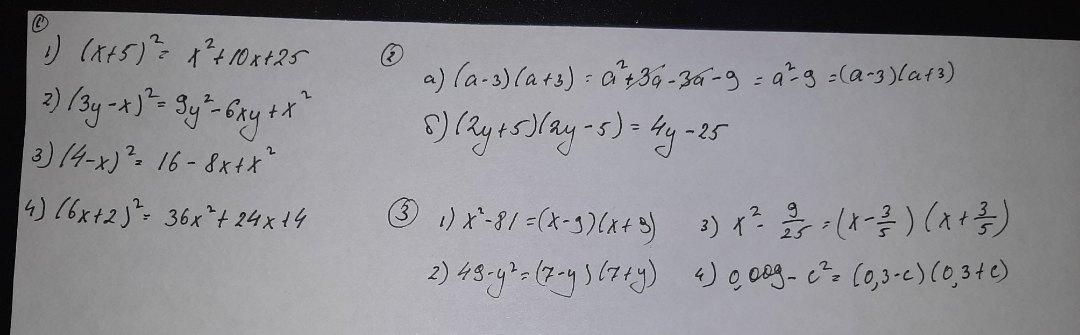 ①
1) (x+5)² = x²+10x+25
2) (3y-x)² = 9y²-6xy+x²
3) (4-x)² = 16-8x+x²
4) (6x+2)² = 36x²+24x+4
②
а) (a-3)(a+3) = a²+3a-3a-9 = a²-9 = (a-3)(a+3)
б) (2y+5)(2y-5) = 4y-25
③ 1) x²-81 = (x-9)(x+9)
2) 49-y² = (7-y)(7+y)
3) x²- 9/25 = (x-3/5)(x+3/5)
4) 0,009-c² = (0,3-c)(0,3+c)